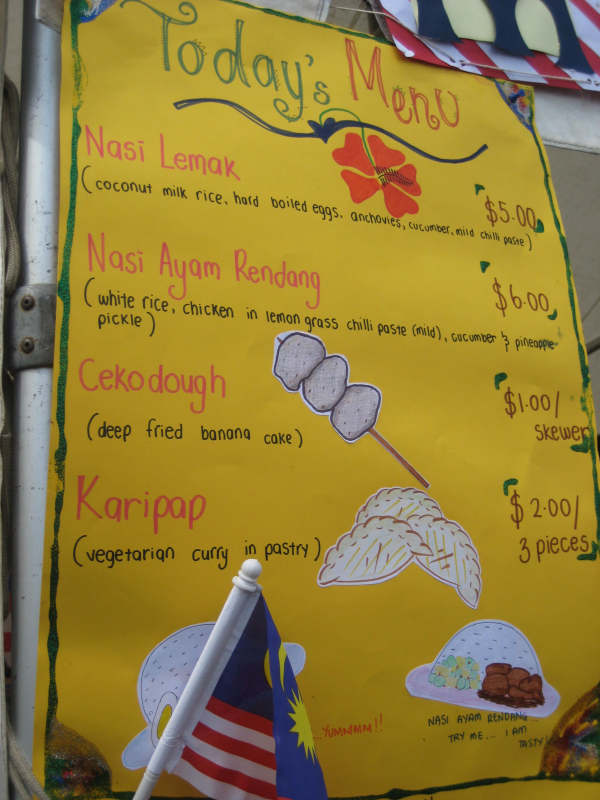 Today's Menu
Nasi Lemak
(coconut milk rice, hard boiled eggs. anchovies, cucumber, mild chilli paste)
$5.00
Nasi Ayam Rendang
(white rice, chicken in lemon grass chilli paste (mild), cucumber & pineapple
pickle)
$6.00
Cekodough
(deep fried banana cake)
$1.00/
skewer
Karipap
(vegetarian curry in pastry)
$2.00/
3 pieces
...YUMMM!!
NASI AYAM RENDANG...
TRY ME... I AM
TASTY!